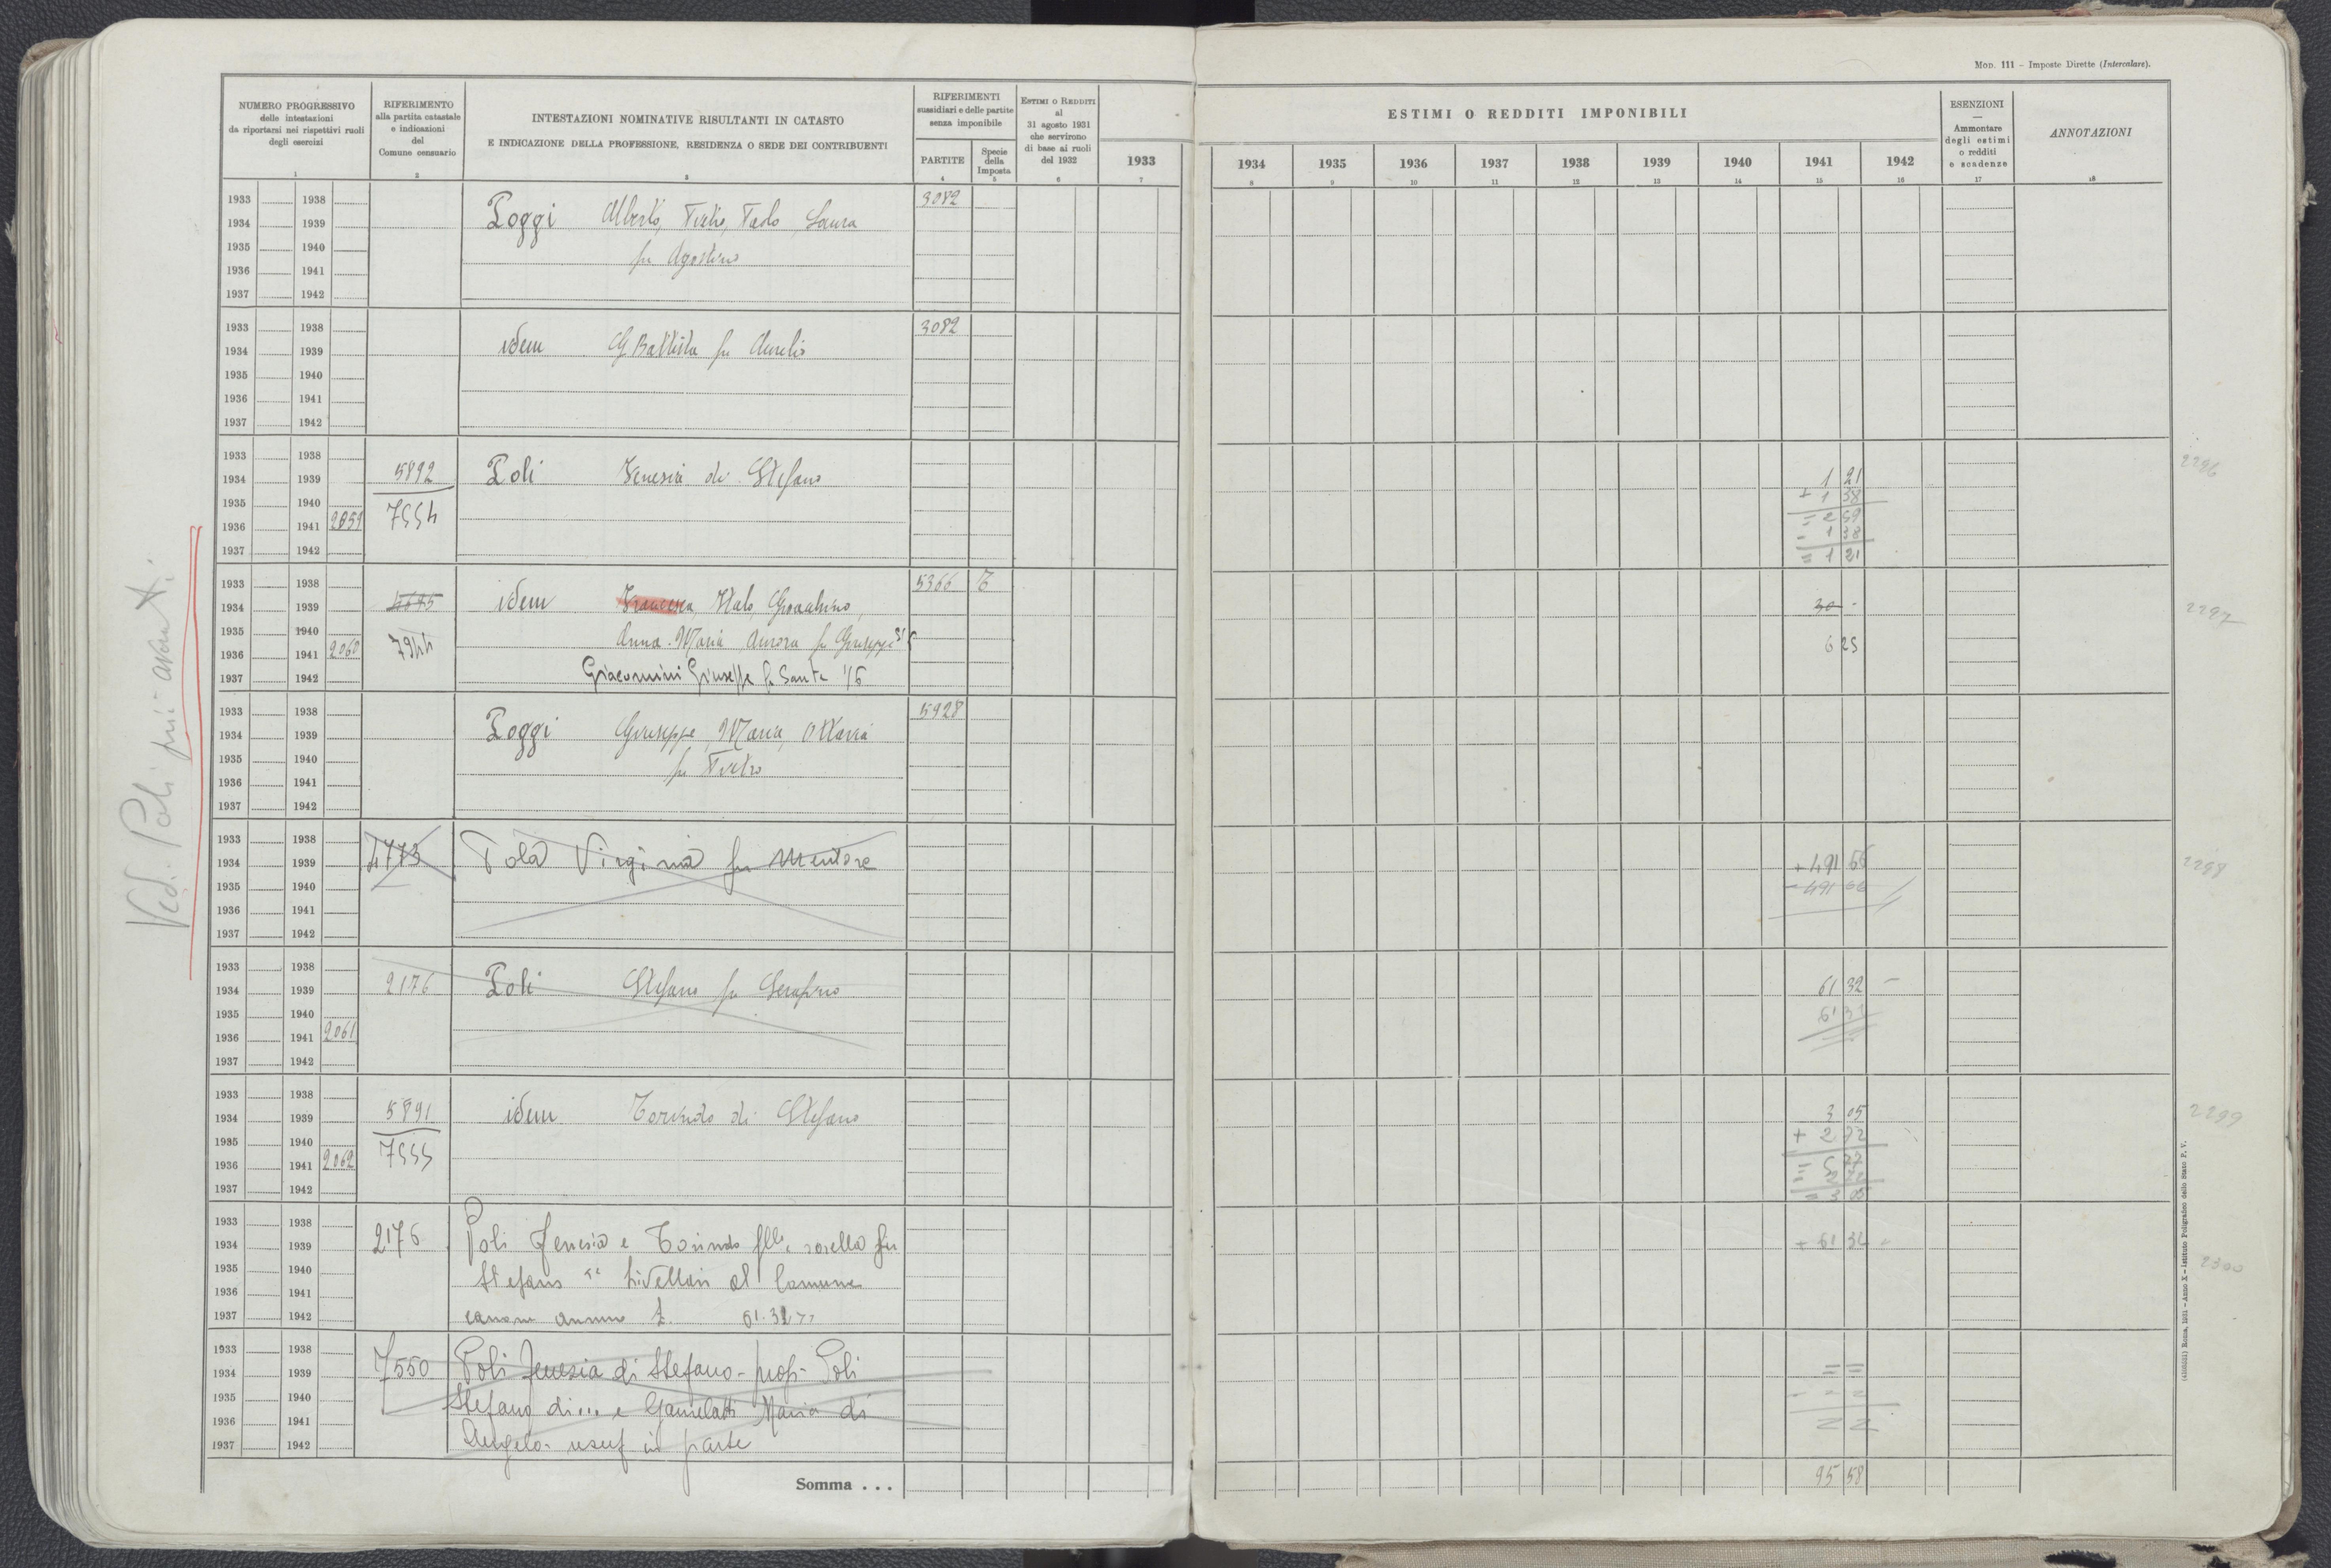 Mod. 111 – Imposte Dirette (Intercalare).
NUMERO PROGRESSIVO
delle intestazioni
da riportarsi nei rispettivi ruoli
degli esercizi
RIFERIMENTO
alla partita catastale
e indicazioni
del
Comune censuario
INTESTAZIONI NOMINATIVE RISULTANTI IN CATASTO
E INDICAZIONE DELLA PROFESSIONE, RESIDENZA O SEDE DEI CONTRIBUENTI
RIFERIMENTI
sussidiari e delle partite
senza imponibile
PARTITE
Specie
della
Imposta
Estimi o Redditi
al
31 agosto 1931
che servirono
di base ai ruoli
del 1932
ESTIMI O REDDITI IMPONIBILI
1933 1934 1935 1936 1937 1938 1939 1940 1941 1942
ESENZIONI
—
Ammontare
degli estimi
o redditi
e scadenze
ANNOTAZIONI
1 2 3 4 5 6 7 8 9 10 11 12 13 14 15 16 17 18
1933 1938 3082
1934 1939 Poggi Alberto, Pietro, Paolo, Laura
1935 1940 fu Agostino
1936 1941
1937 1942
1933 1938 3082
1934 1939 idem G Battista fu Aurelio
1935 1940
1936 1941
1937 1942
1933 1938 2296
1934 1939 5892 Poli Genesia di Stefano 1 21
1935 1940 + 1 38
1936 1941 2059 7554 = 2 59
- 1 38
1937 1942 = 1 21
1933 1938 5366 T
1934 1939 idem Francesca, Italo, Gioachino, 30 - 2297
1935 1940 Anna-Maria Aurora fu Giuseppe
1936 1941 2060 7944 6 25
1937 1942 Giacomini Giuseppe fu Sante 1/6
1933 1938 5928
1934 1939 Poggi Giuseppe, Maria, Ottavia
1935 1940 fu Pietro
1936 1941
1937 1942
1933 1938
1934 1939 4773 Pola Virginia fu Mentore + 491 66 2298
1935 1940 - 491 66
1936 1941
1937 1942
1933 1938
1934 1939 2176 Poli Stefano fu Serafino 61 32 -
1935 1940 61 32
1936 1941 2061
1937 1942
1933 1938
1934 1939 5891 idem Torindo di Stefano 3 05 2299
1935 1940 + 2 72
1936 1941 2062 7555 = 5 77
1937 1942 = 3 05
1933 1938
1934 1939 2176 Poli Genesia e Torindo flli, sorella fu + 61 32
1935 1940 Stefano livellari al Comune 2300
1936 1941
1937 1942 canone annuo £. 61.32
1933 1938
1934 1939 7550 Poli Genesia di Stefano - prop. Poli = =
1935 1940 Stefano di ... e Maria di
1936 1941
1937 1942 Angelo - usuf in parte
Somma . . . 95 58
Ved. Poli più avanti
(4100231) Roma, 1931 – Anno X – Istituto Poligrafico dello Stato P. V.